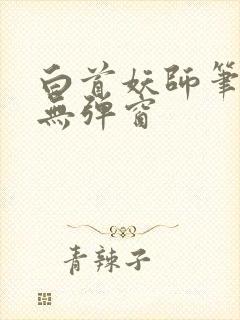 白首妖師筆
無彈窗
青辣子